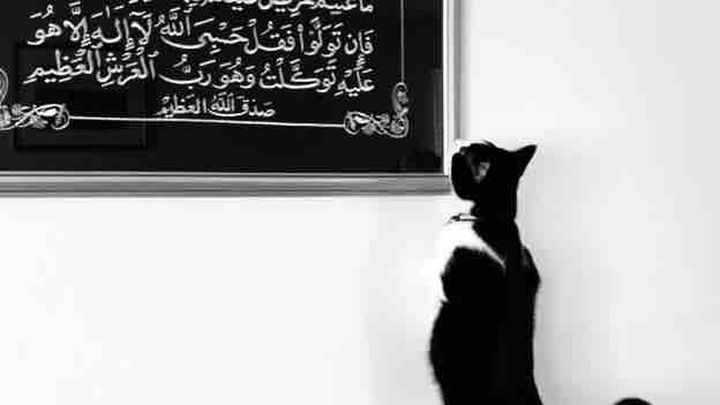 ما عنتم حريص عليكم
فَإِن تَوَلَّوْا فَقُلْ حَسْبِيَ اللَّهُ لَآ إِلَٰهَ إِلَّا هُوَ
عَلَيْهِ تَوَكَّلْتُ وَهُوَ رَبُّ الْعَرْشِ الْعَظِيمِ
صَدَقَ اللَّهُ الْعَظِيمُ